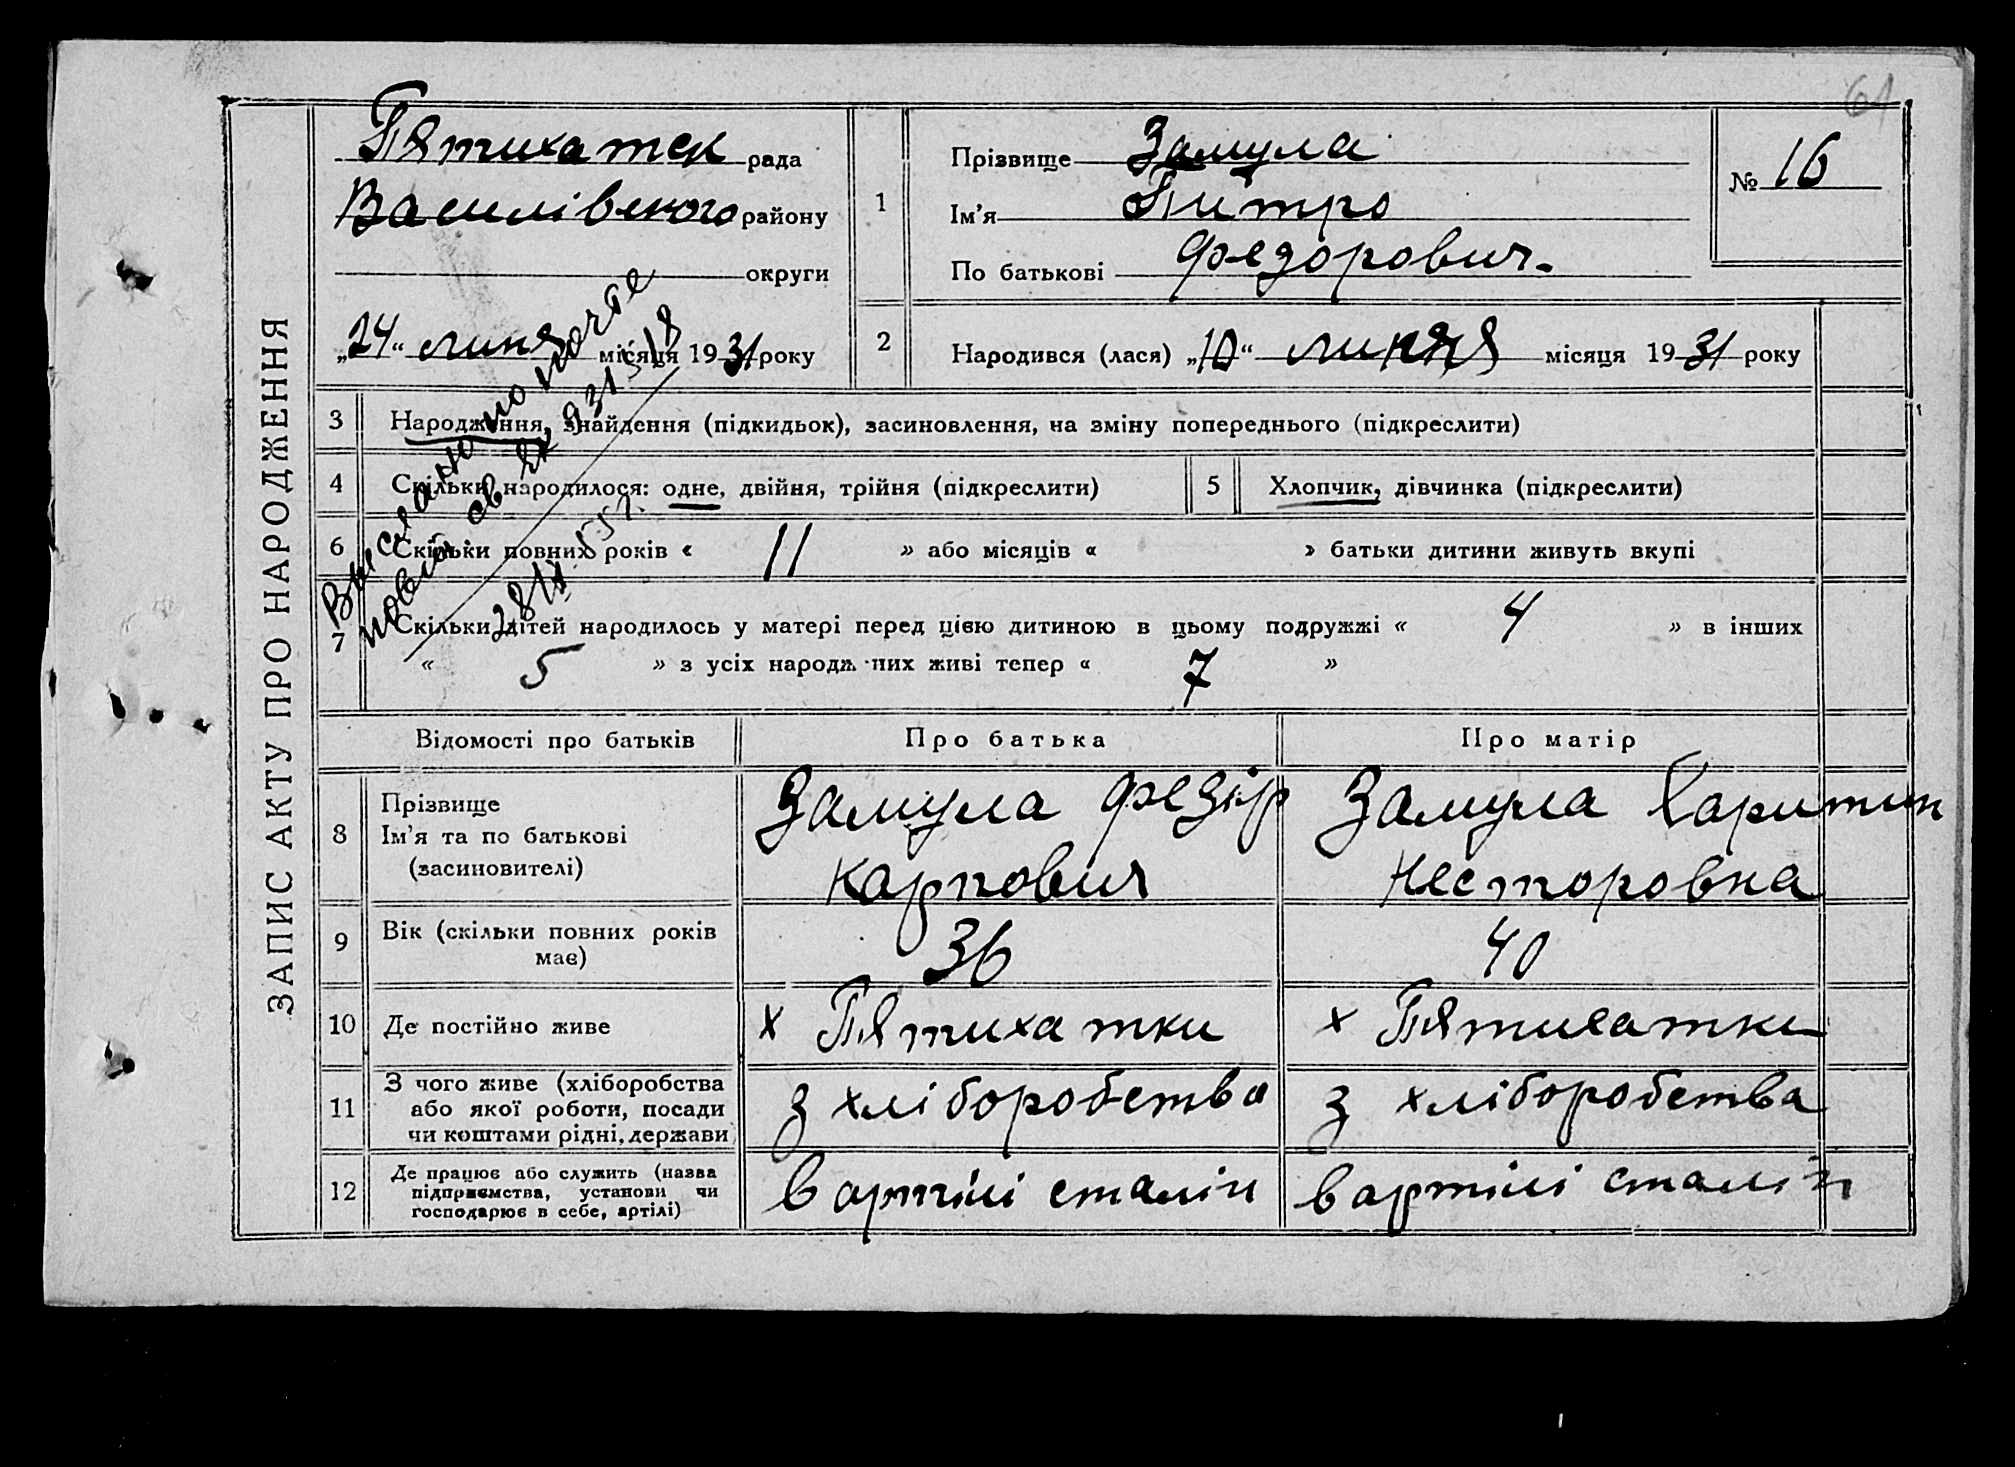 61
ЗАПИС АКТУ ПРО НАРОДЖЕННЯ
Пятихатск рада
Василівского району
округи
„24“ липня місяця 1931 року
1
Прізвище Замула
Ім'я Питро
По батькові Федорович.
№ 16
2 Народився (лася) „10“ липня місяця 1931 року
3 Народження, знайдення (підкидьок), засиновлення, на зміну попереднього (підкреслити)
4 Скільки народилося: одне, двійня, трійня (підкреслити)
5 Хлопчик, дівчинка (підкреслити)
6 Скільки повних років « 11 » або місяців « » батьки дитини живуть вкупі
7 Скільки дітей народилось у матері перед цією дитиною в цьому подружжі « 4 » в інших
« 5 » з усіх народж них живі тепер « 7 »
Выслано по почте
новый св
28/X 55 г.
Відомості про батьків Про батька Про матір
8 Прізвище
Ім'я та по батькові
(засиновителі)
Замула Федір
Карпович
Замула Харитин
Несторовна
9 Вік (скільки повних років
має)
36 40
10 Де постійно живе х Пятихатки х Пятихатки
11 З чого живе (хліборобства
або якої роботи, посади
чи коштами рідні, держави
з хліборобства з хліборобства
12 Де працює або служить (назва
підприємства, установи чи
господарює в себе, артілі)
в артілі сталін в артілі сталін